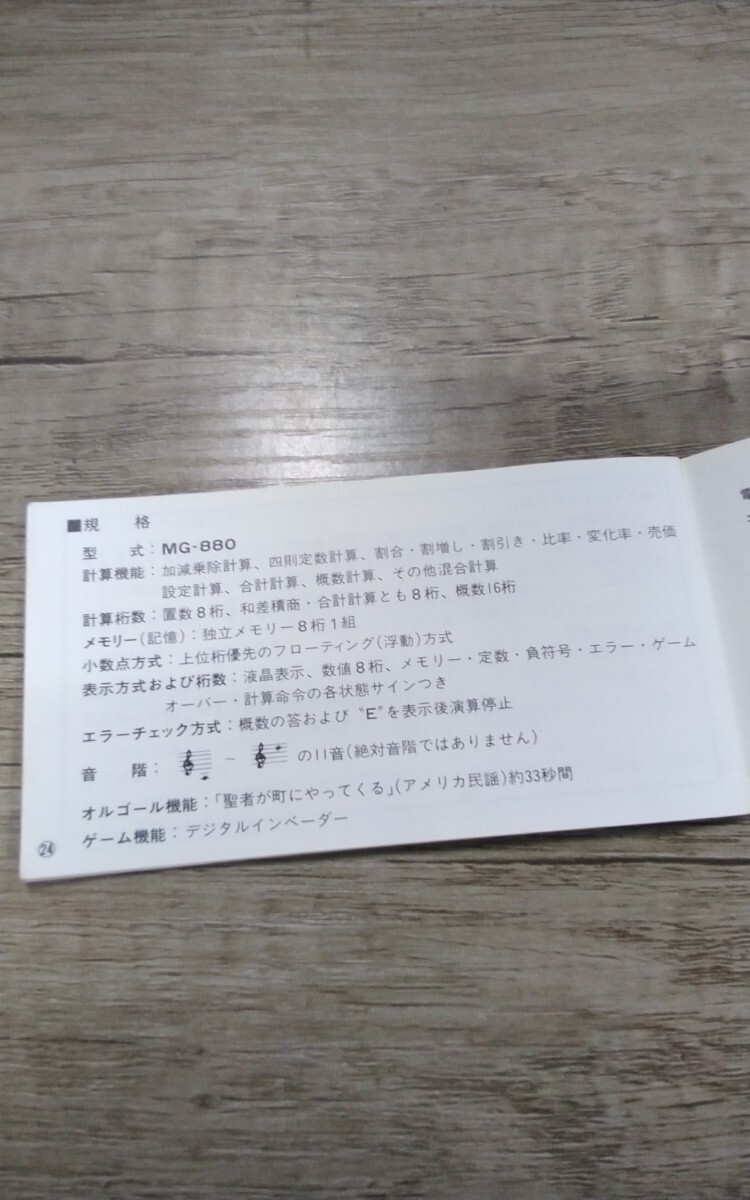 ■規　格
型　式：MG-880
計算機能：加減乗除計算、四則定数計算、割合・割増し・割引き・比率・変化率・売価
設定計算、合計計算、概数計算、その他混合計算
計算桁数：置数8桁、和差積商・合計計算とも8桁、概数16桁
メモリー(記憶)：独立メモリー8桁1組
小数点方式：上位桁優先のフローティング(浮動)方式
表示方式および桁数：液晶表示、数値8桁、メモリー・定数・負符号・エラー・ゲーム
オーバー・計算命令の各状態サインつき
エラーチェック方式：概数の答および〝E〟を表示後演算停止
音　階：～の11音(絶対音階ではありません)
オルゴール機能：「聖者が町にやってくる」(アメリカ民謡)約33秒間
ゲーム機能：デジタルインベーダー
24